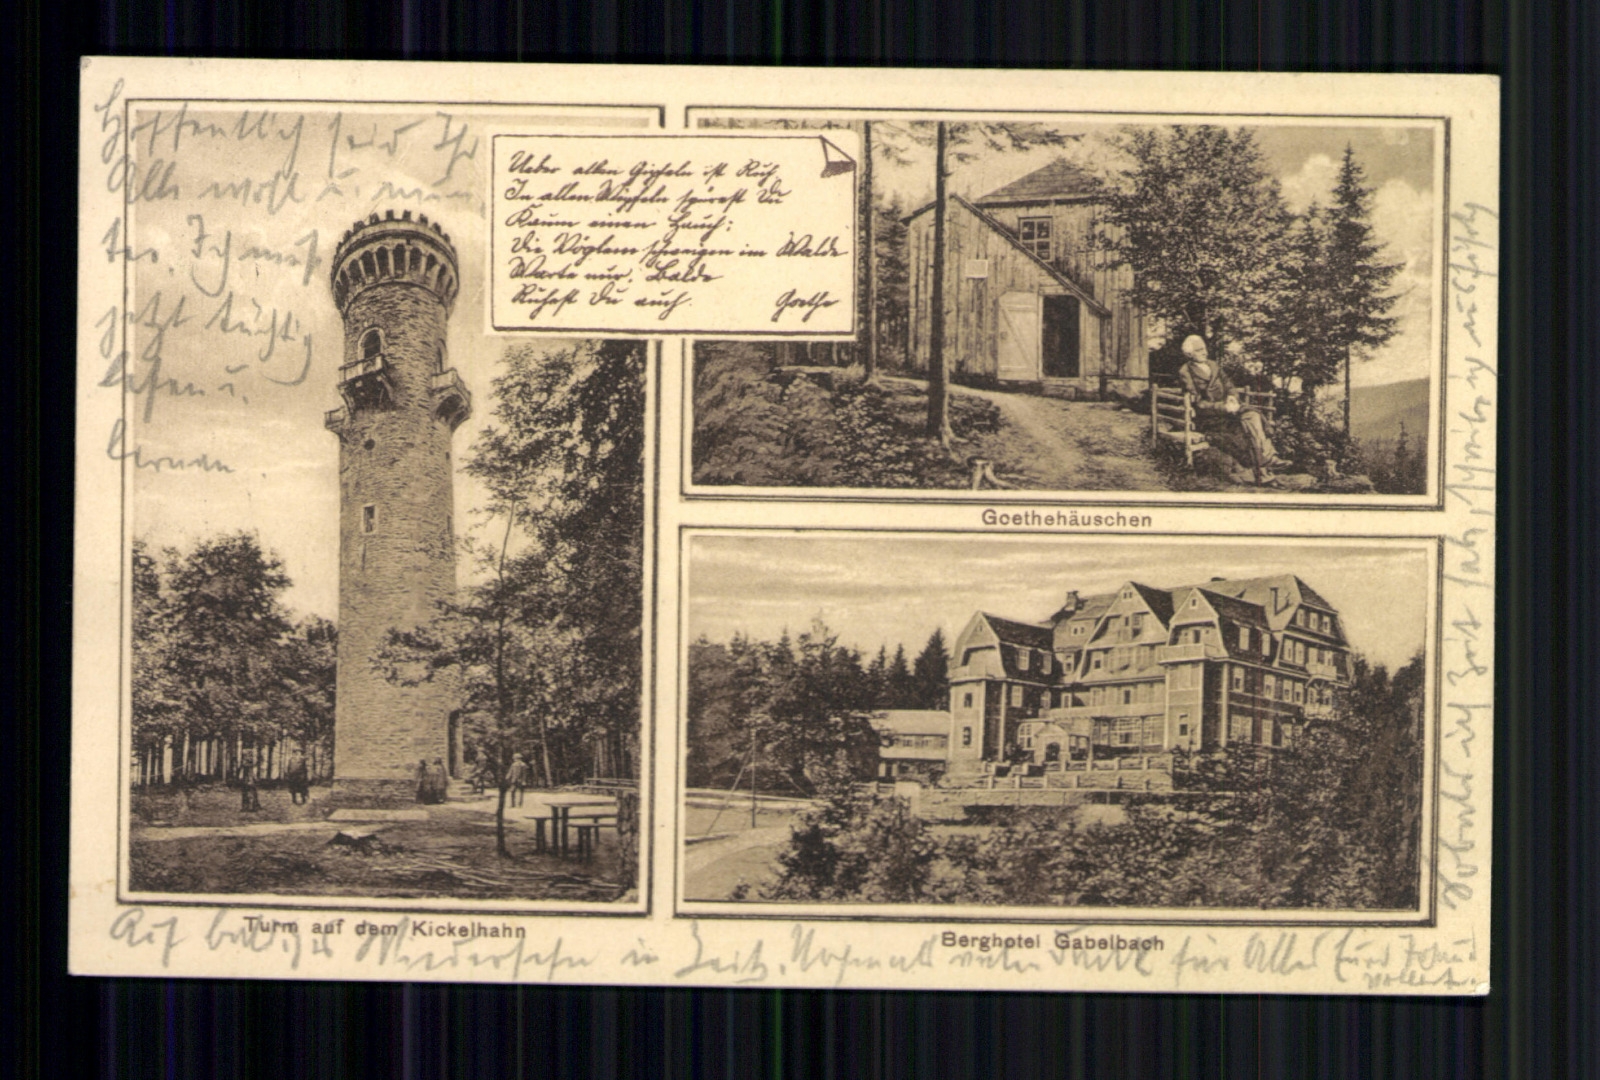 Hoffentlich seid Ihr
Alle wohl u. mun
ter. Ich muß
jetzt tüchtig
lesen u.
lernen.
Ueber allen Gipfeln ist Ruh,
In allen Wipfeln spürest Du
Kaum einen Hauch;
Die Vöglein schweigen im Walde
Warte nur, Balde
Ruhest Du auch.
Goethe
Goethehäuschen
Turm auf dem Kickelhahn
Berghotel Gabelbach
Auf baldiges Wiedersehn in Zeitz. Nochmals vielen Dank für Alles Eure
Sobald ich Zeit hab, schreib ich